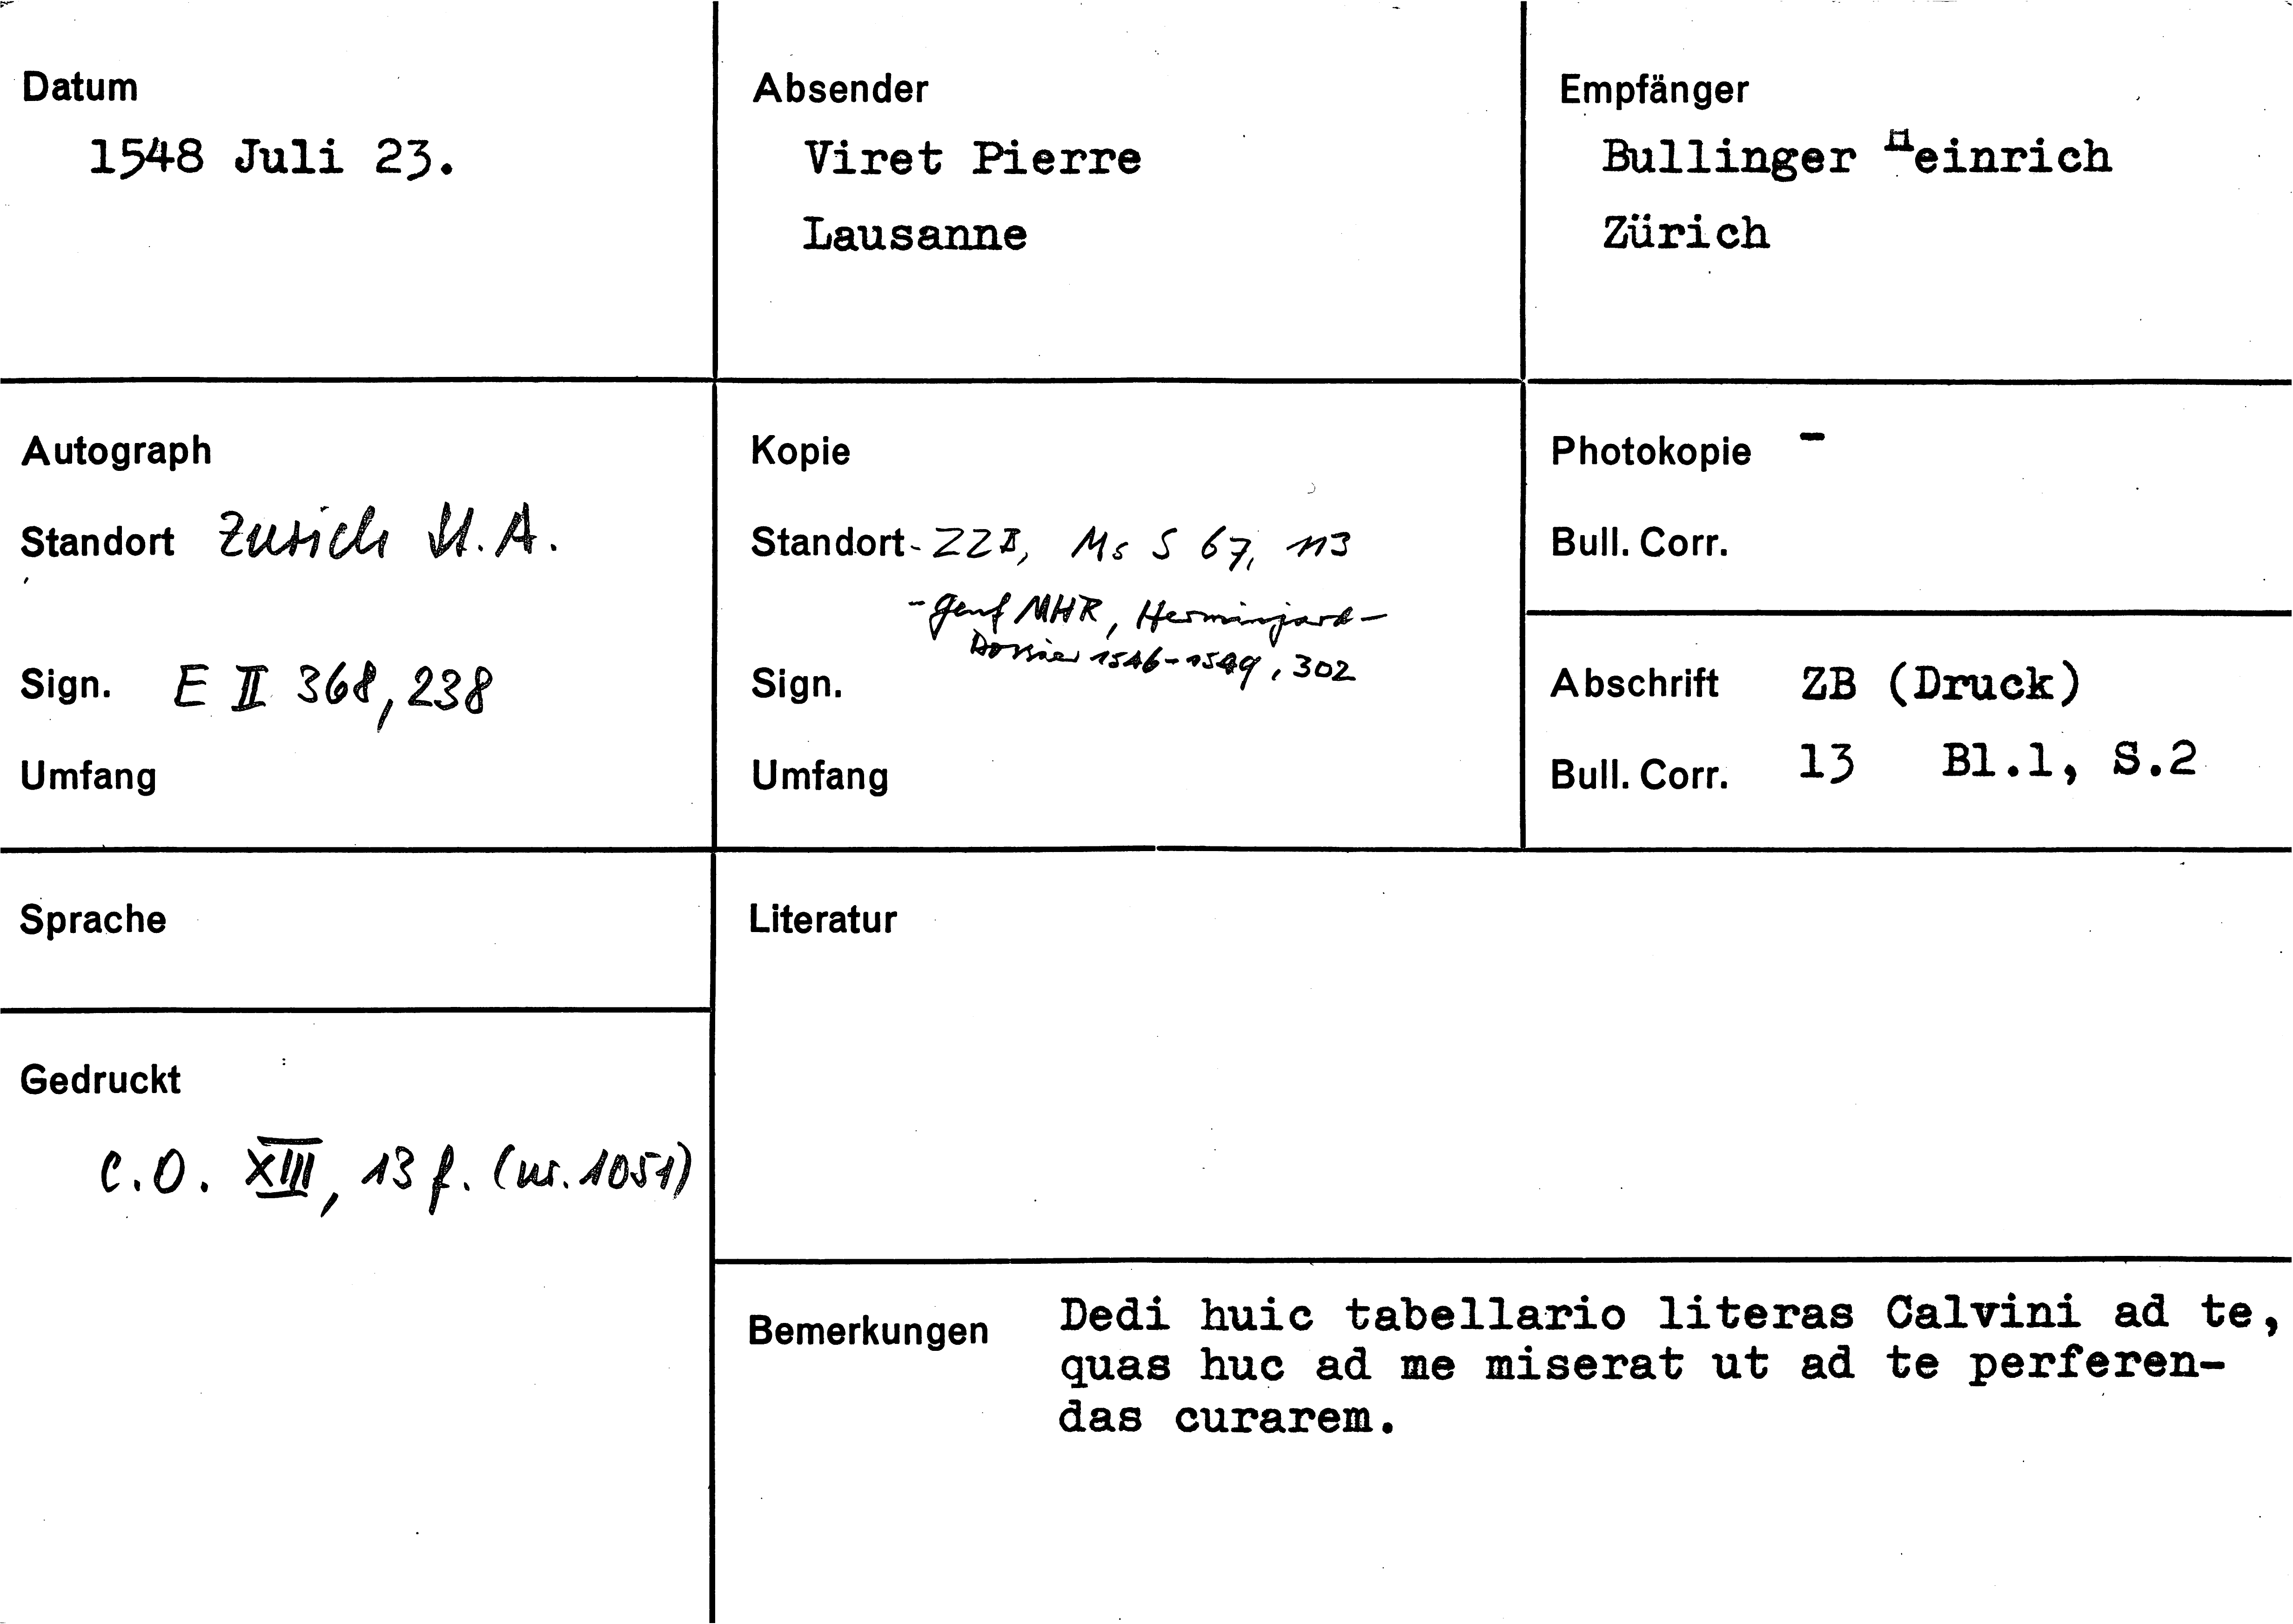 Datum
1548 Juli 23.
Absender
Viret Pierre
Lausanne
Empfänger
Bullinger Heinrich
Zürich
Autograph
Standort Zürich St. A.
Sign. E II 368, 238
Umfang
Kopie
Standort - ZZB, Ms S 67, 113
- Genf MHR, Herminjard-
Dossier 1546-1549, 302
Sign.
Umfang
Photokopie -
Bull. Corr.
Abschrift ZB (Druck)
Bull. Corr. 13 Bl.1, S.2
Sprache
Gedruckt
C.O. XIII, 13 f. (nr. 1051)
Literatur
Bemerkungen Dedi huic tabellario literas Calvini ad te,
quas huc ad me miserat ut ad te perferen-
das curarem.